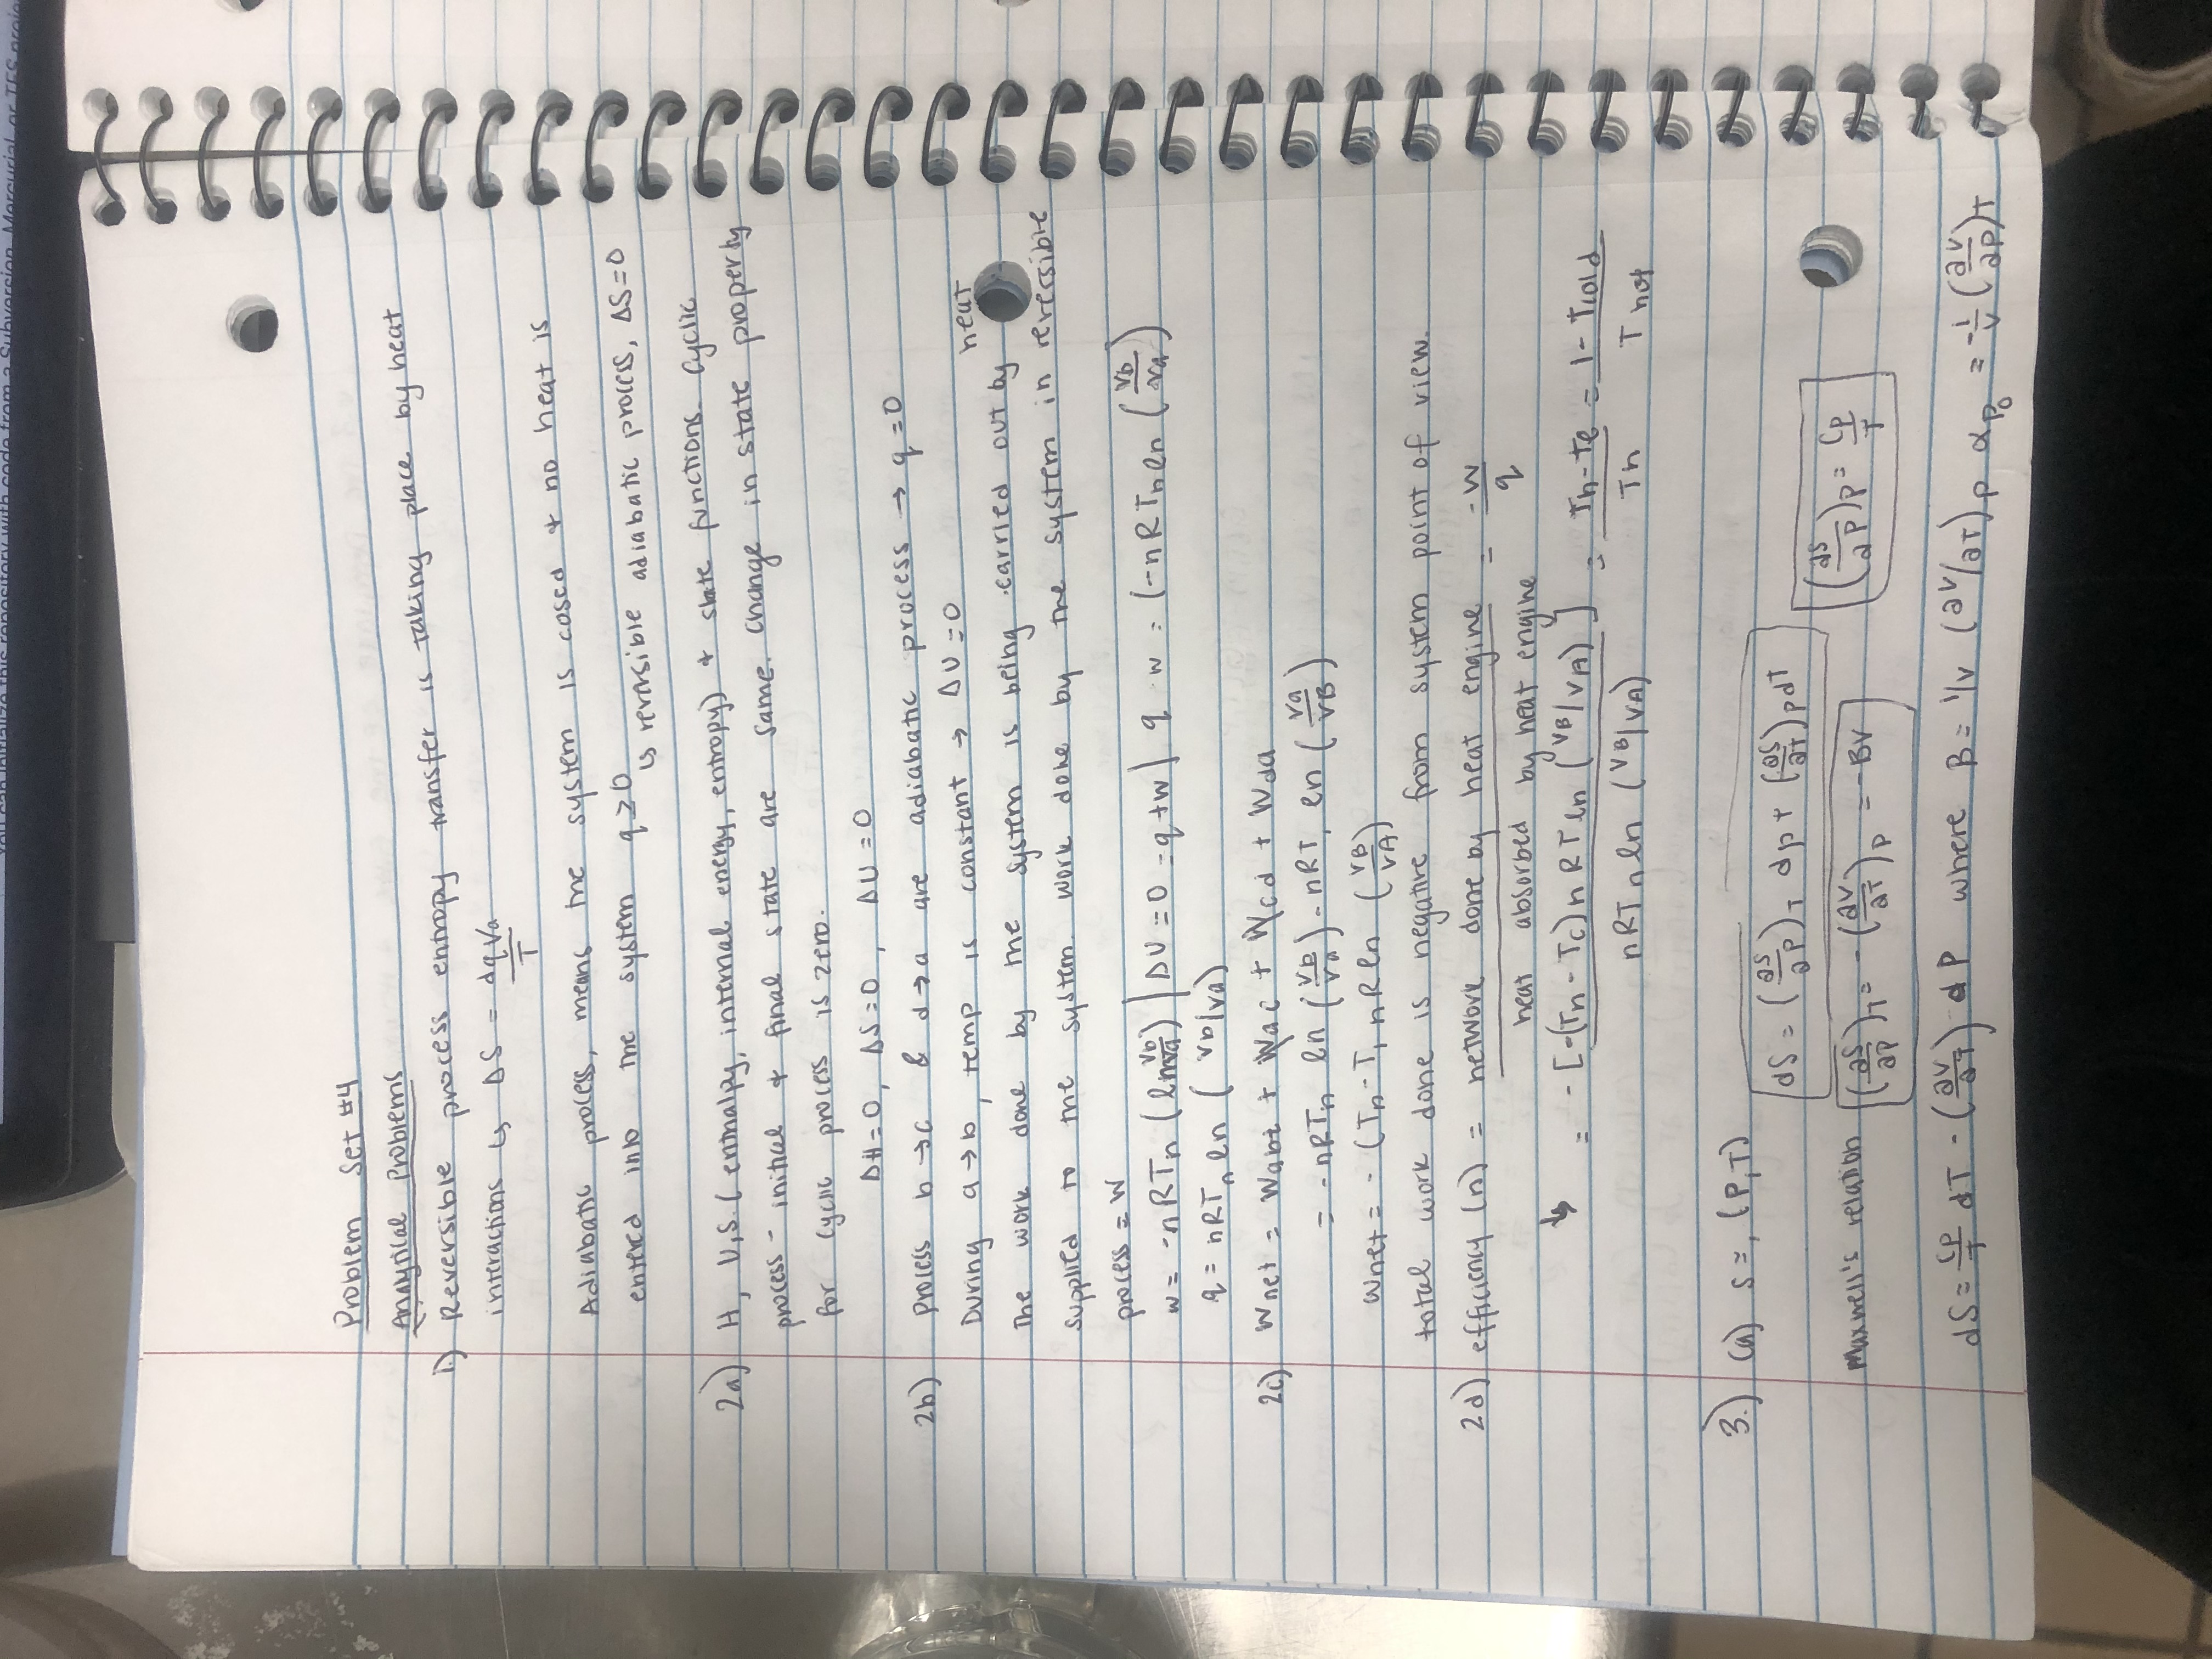 You can initialize this repository with code from a Subversion, Mercurial, or TFS project
Problem Set #4
Analytical Problems
1.) Reversible process entropy transfer is taking place by heat
interactions ↳ ΔS = dq Va / T
Adiabatic process, means the system is cosed & no heat is
entered into the system q≥0
↳ reversible adiabatic process, ΔS=0
2a) H, U,S. (enthalpy, internal energy, entropy) & state functions. Cyclic
process - initial & final state are same. Change in state property
for cyclic process is zero.
ΔH=0, ΔS=0, ΔU=0
2b) Process b→c & d→a are adiabatic process → q=0
During a→b, temp is constant → ΔU=0
The work done by the system is being carried out by heat
supplied to the system. Work done by the system in reversible
process = W
w = -nRTn (ln Vb/Va) | ΔU=0=q+w | q w = (-nRTn ln (Vb/Va)
q = nRTn ln (Vb/Va)
2c) Wnet = Wabt + Wac + Wcd + Wda
= -nRTn ln (Vb/Va) - nRT, ln (Va/VB)
Wnet = - (Tn-T, nR ln (VB/VA)
total work done is negative from system point of view.
2d) efficiency (n) = network done by heat engine / heat absorbed by heat engine = -W/q
↳ = -[-(Tn-Tc)nRT ln (VB/VA)] / nRTn ln (VB/VA) = Th-Te / Th = 1-Tcold / T hot
3.) (a) S=, (P,T)
dS = (∂S/∂P)T dp + (∂S/∂T)P dT
Maxwell's relation (∂S/∂P)T = -(∂V/∂T)P = -BV
(∂S/∂P)P = Cp/T
dS = Cp/T dT - (∂V/∂T) dP where B = 1/V (∂V/∂T)P αP0 = -1/V (∂V/∂P)T